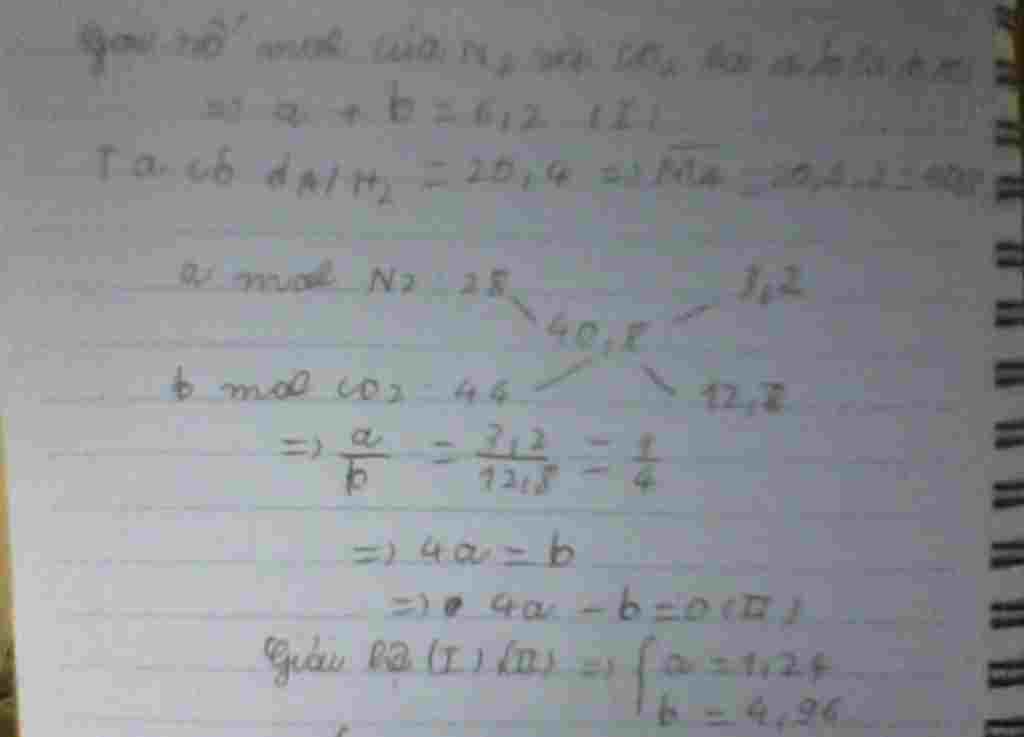 Gọi số mol của N2 và CO2 là a, b
=> a + b = 6,2 (I)
Ta có dA/H2 = 20,4 => MA = 20,4.2 = 40,8
a mol N2 28 3,2
40,8
b mol CO2 44 12,8
=> a/b = 3,2/12,8 = 1/4
=> 4a = b
=> 4a - b = 0 (II)
Giải hệ (I) (II) => { a = 1,24
b = 4,96